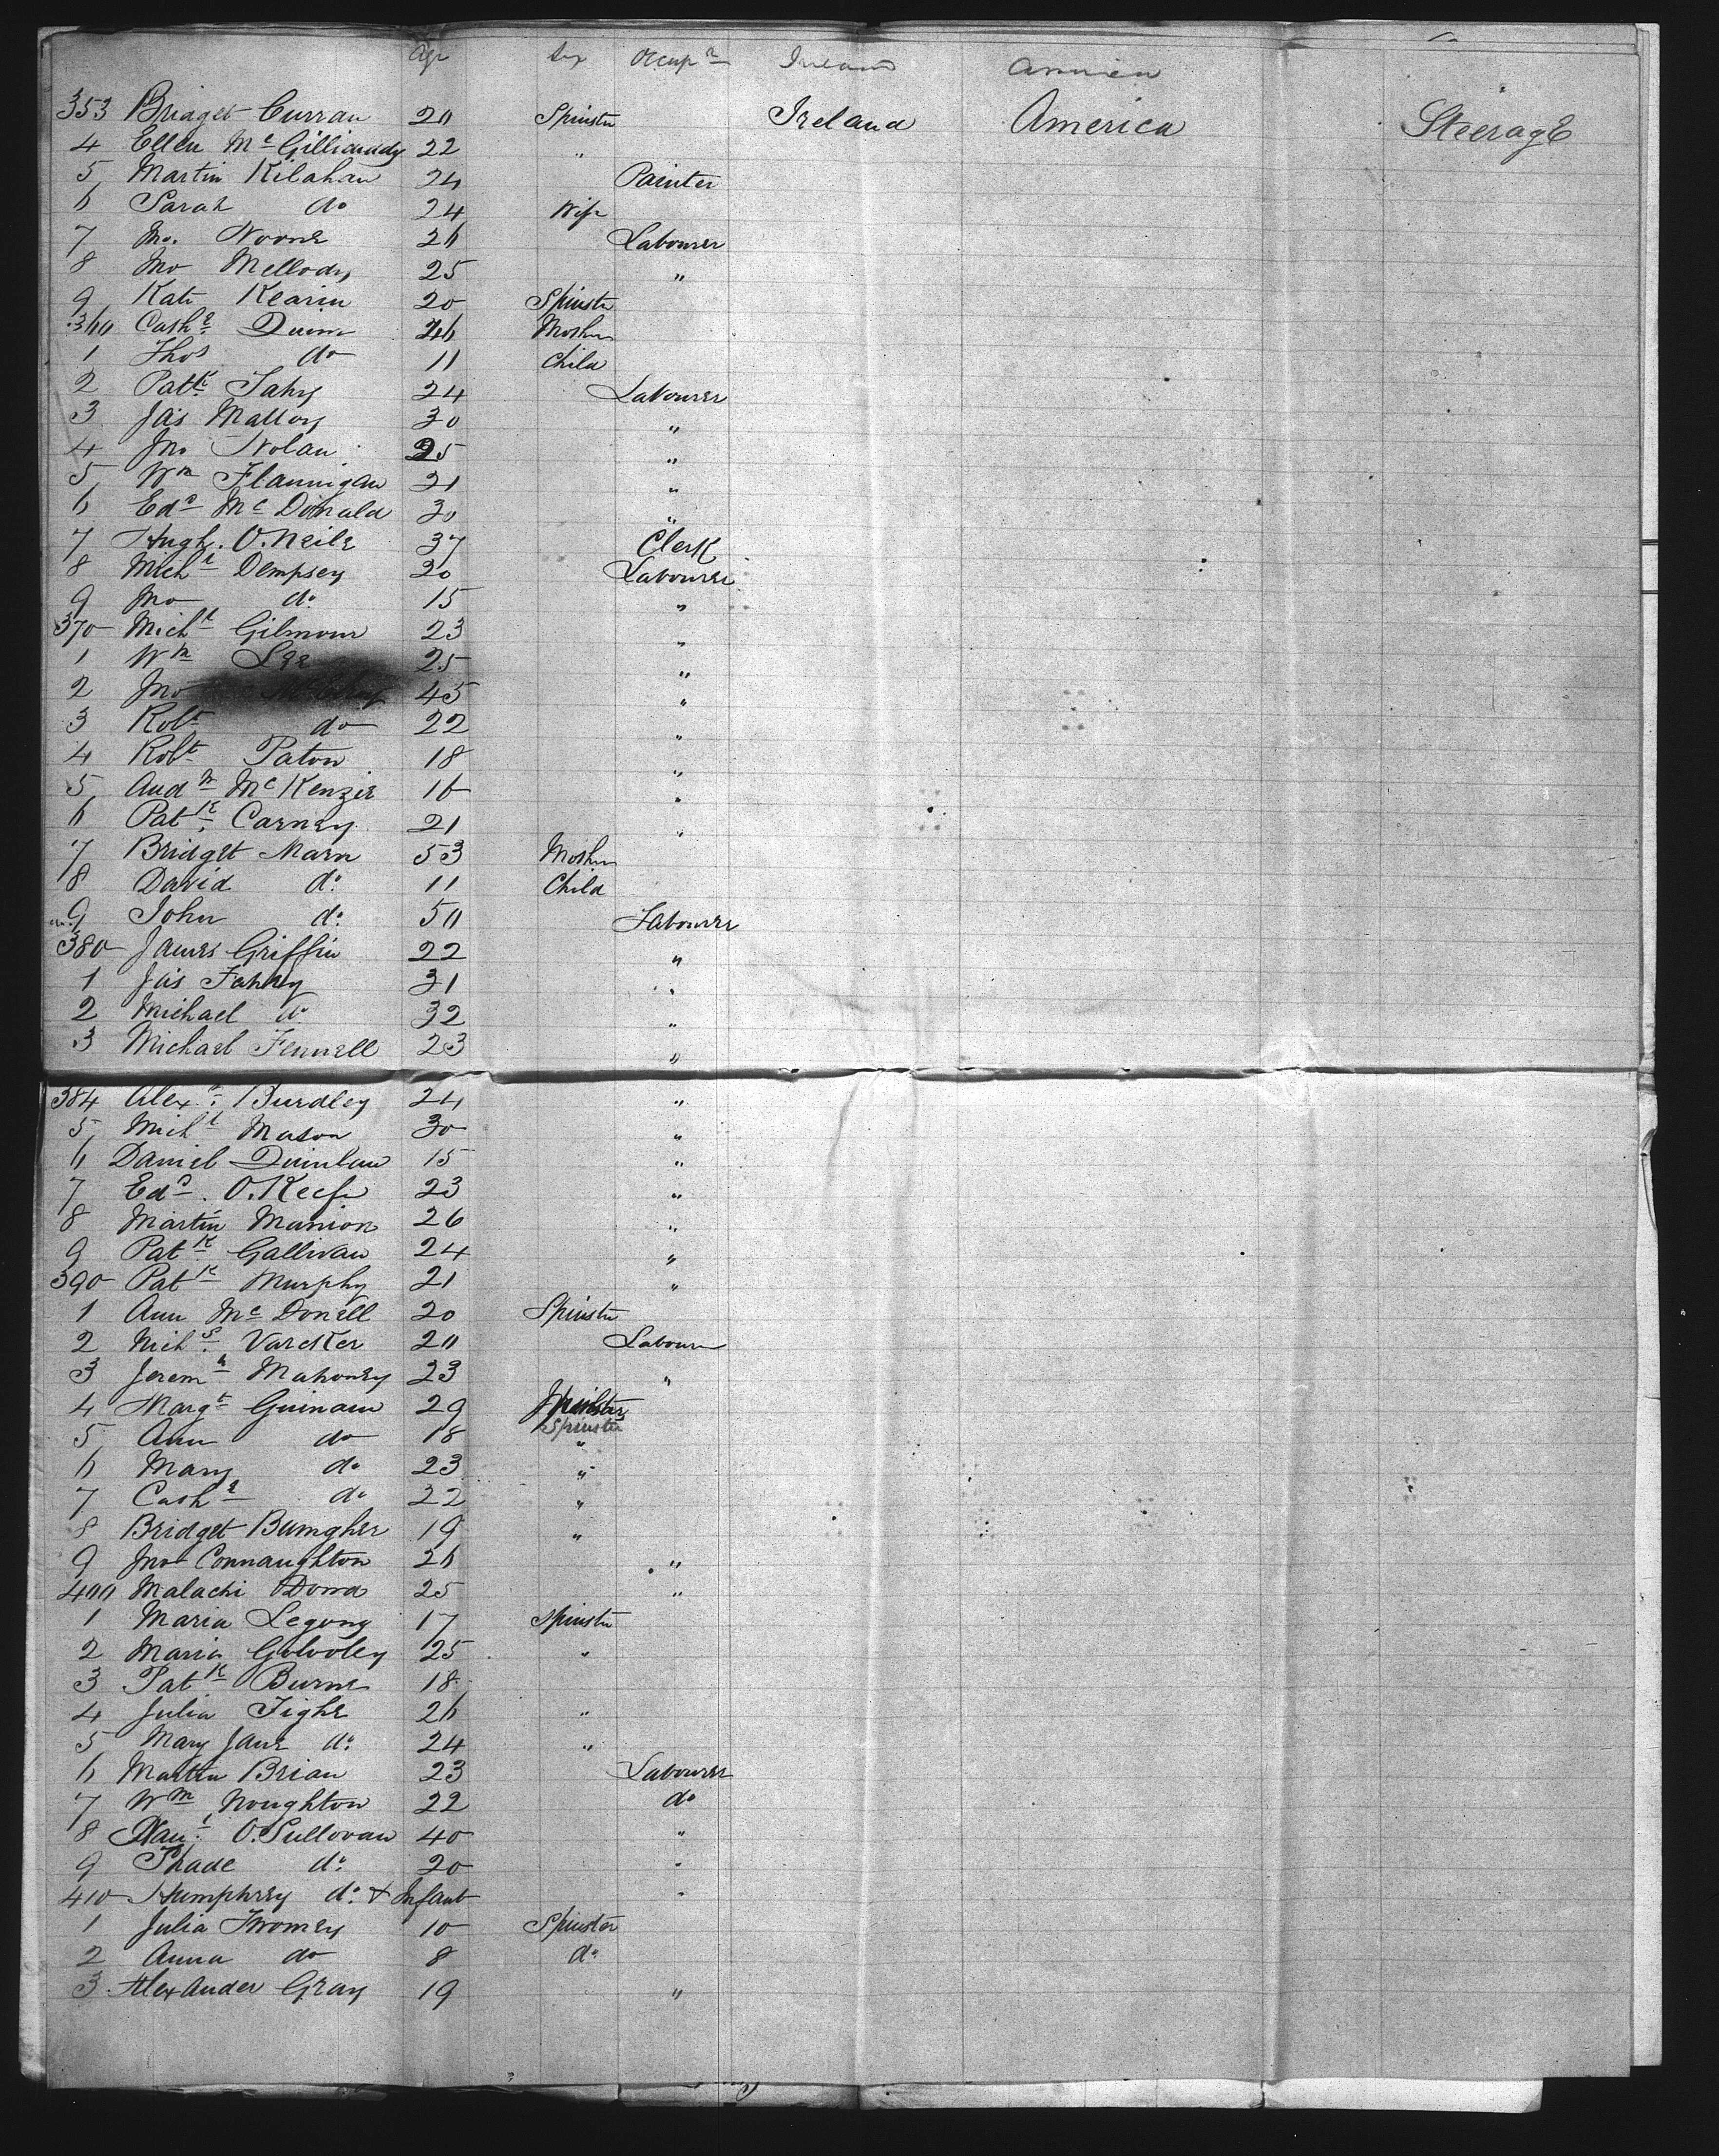 Age Sex Occupn Ireland America
353 Bridget Curran 20 Spinster Ireland America Steerage
4 Ellen Mc Gillicuddy 22 "
5 Martin Kilahan 24 Painter
6 Sarah do 24 Wife
7 Jno. Noone 26 Labourer
8 Jno Mellody 25 "
9 Kate Kearin 20 Spinster
360 Cathe Quinn 46 Mother
1 Thos do 11 Child
2 Patk Fahy 24 Labourer
3 Jas Mallory 30 "
4 Jno Nolan 25 "
5 Wm Flannigan 21 "
6 Edd Mc Donald 30 "
7 Hugh O.Neile 37 Clerk
8 Michl Dempsey 20 Labourer
9 Jno do 15 "
370 Michl Gilmour 23 "
1 Wm Lee 25 "
2 Jno 45 "
3 Robt do 22 "
4 Robt Paton 18 "
5 Andw McKenzie 16 "
6 Patk Carney 21 "
7 Bridget Marn 53 Mother
8 David do 11 Child
9 John do 50 Labourer
380 James Griffin 22 "
1 Jas Fahey 31 "
2 Michael do 32 "
3 Michael Fennell 23 "
384 Alexr Burdley 24 "
5 Michl Mason 30 "
6 Daniel Quinlan 15 "
7 Edd. O.Keefe 23 "
8 Martin Manion 26 "
9 Patk Gallivan 24 "
390 Patk Murphy 21 "
1 Ann Mc Donell 20 Spinster
2 Nichs Varcker 20 Labourer
3 Jeremh Mahoney 23 "
4 Margt Guinan 29 Spinster
Spinster
5 Ann do 18 "
6 Mary do 23 "
7 Cathe do 22 "
8 Bridget Bumgher 19 "
9 Jno Connaughton 26 "
400 Malachi Dowd 25 "
1 Maria Legony 17 Spinster
2 Maria 25 "
3 Patk Burne 18
4 Julia Tighe 26 "
5 Mary Jane do 24 "
6 Martin Brian 23 Labourer
7 Wm Noughton 22 do
8 O.Sullovan 40 "
9 Thade do 20 "
410 Humphrey do & Infant "
1 Julia Twomey 10 Spinster
2 Anna do 8 do
3 Alexander Gray 19 "